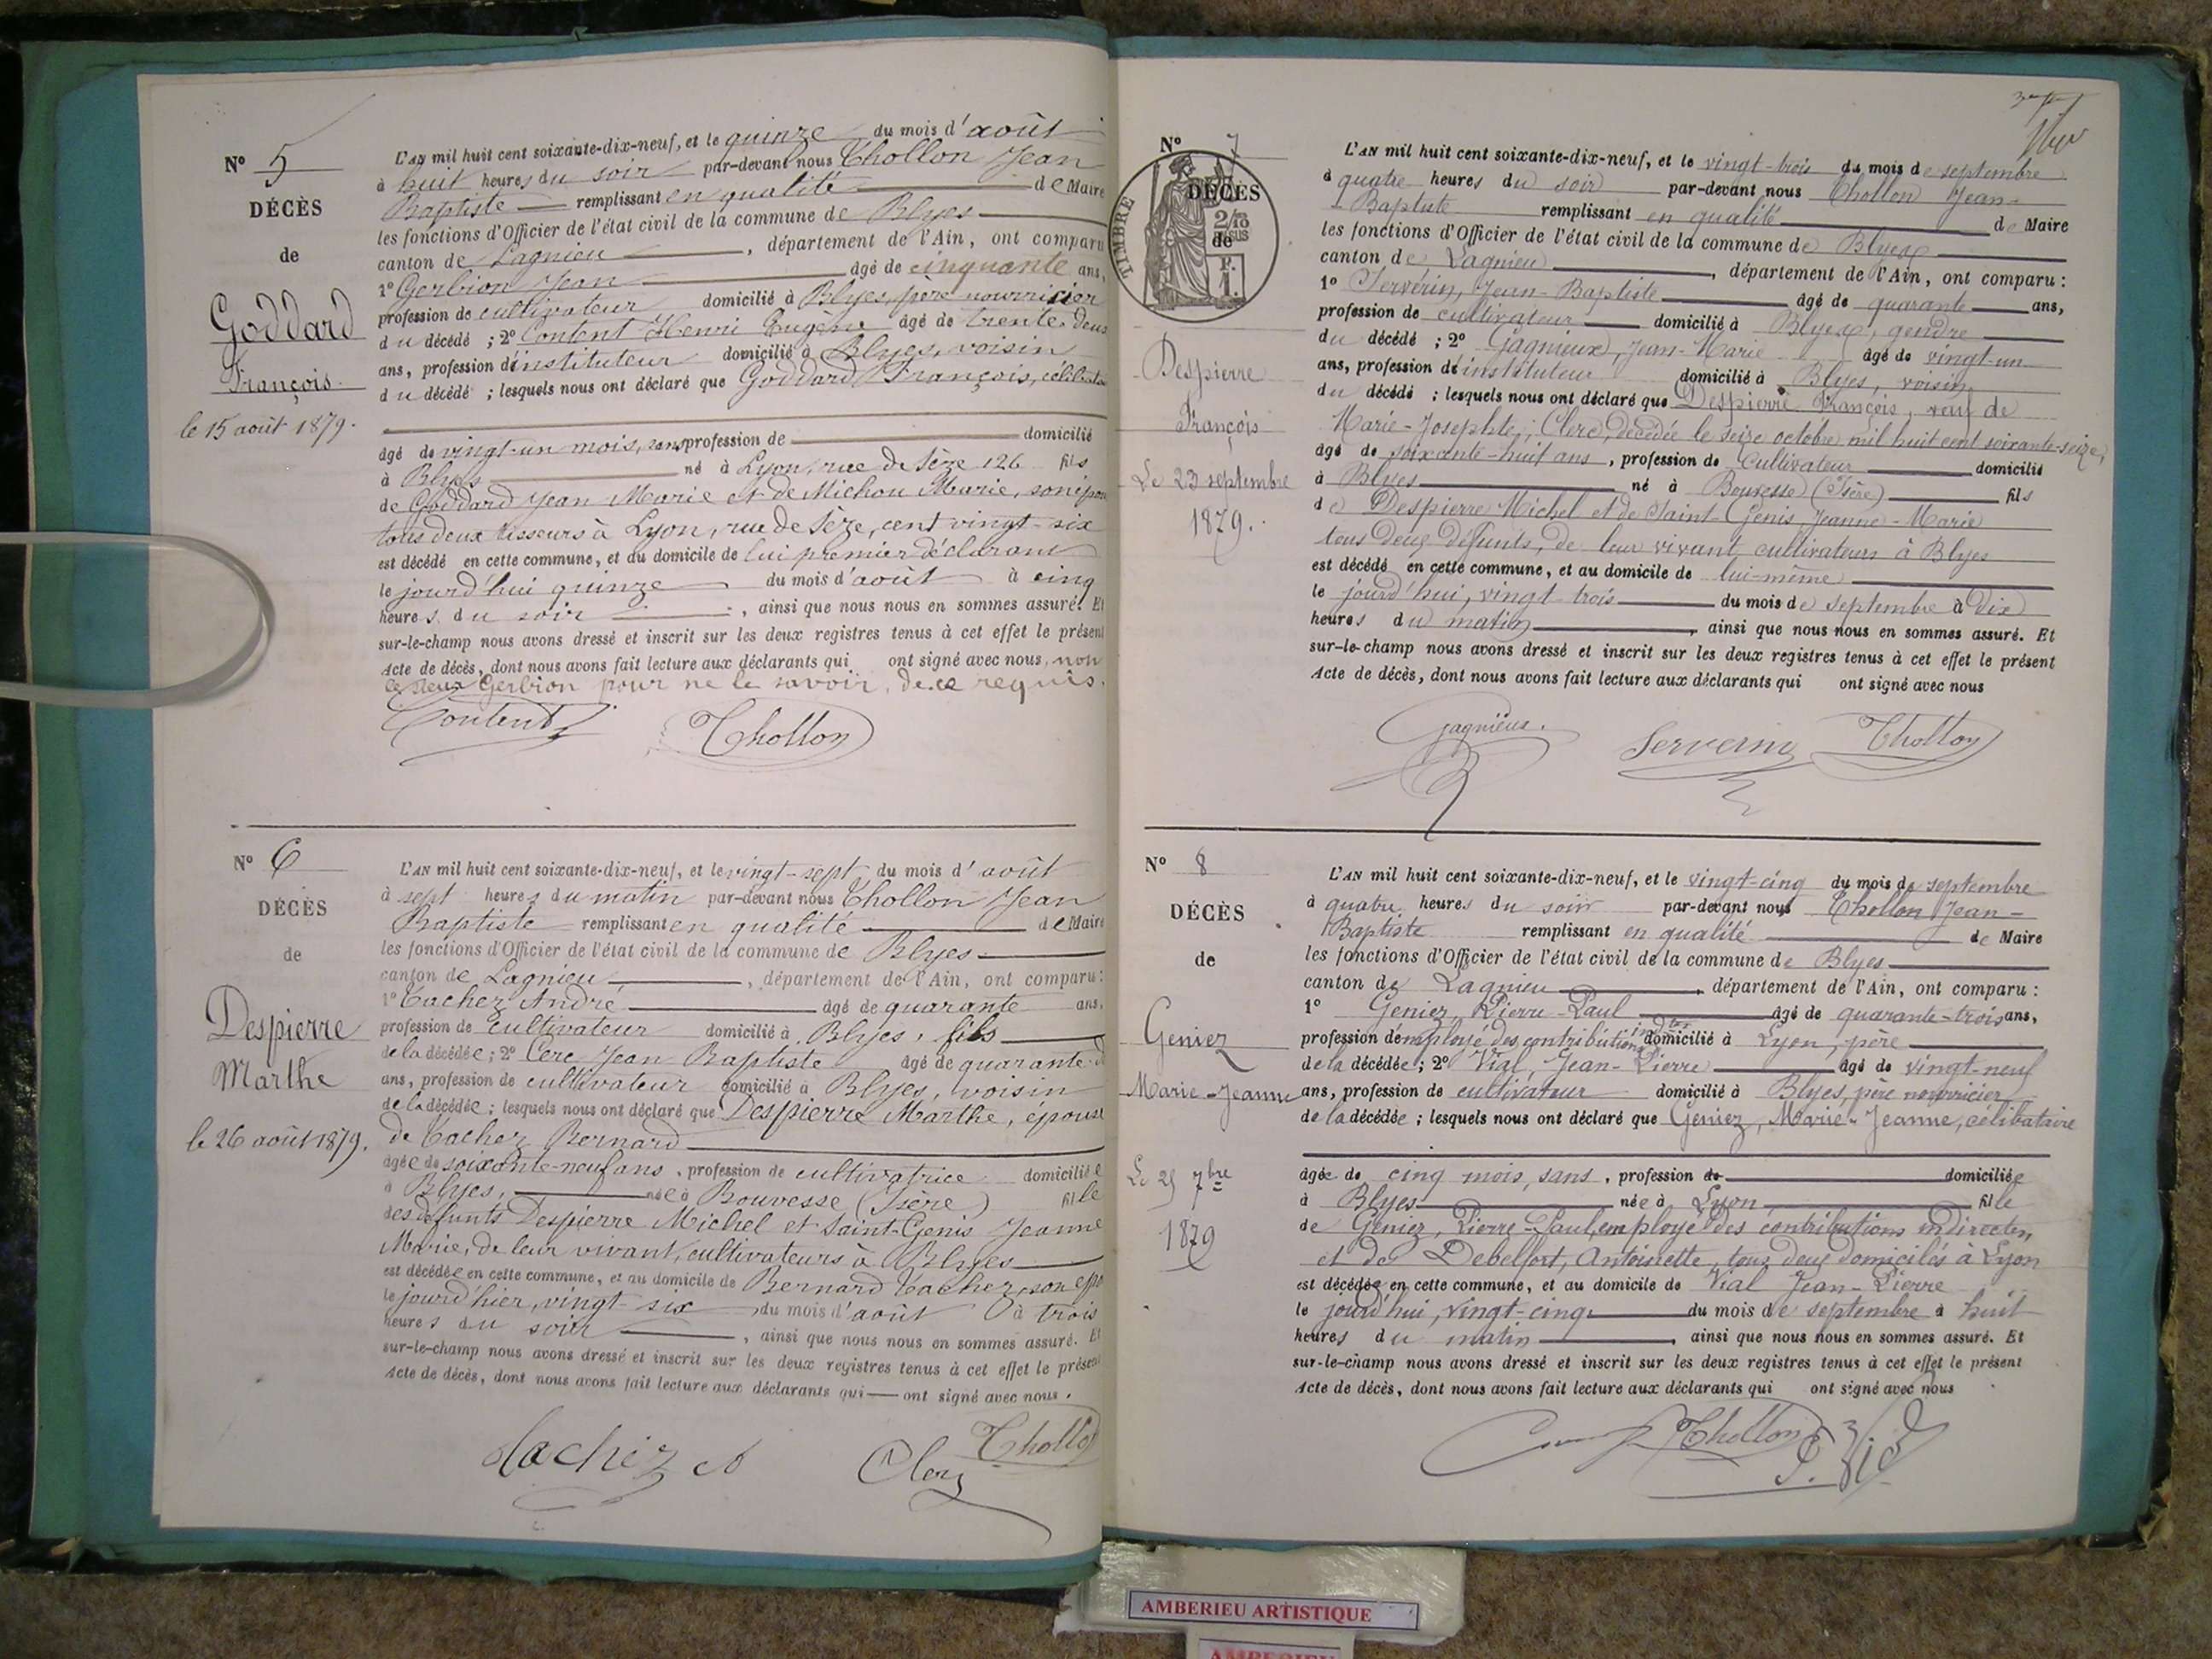 N° 5
DÉCÈS
de
Goddard
François
le 15 août 1879.
L'AN mil huit cent soixante-dix-neuf, et le quinze du mois d'août
à huit heures du soir par-devant nous Chollon Jean
Baptiste remplissant en qualité de Maire
les fonctions d'Officier de l'état civil de la commune de Blyes
canton de Lagnieu, département de l'Ain, ont comparu
1° Gerbion Jean âgé de cinquante ans,
profession de cultivateur domicilié à Blyes, père nourricier
du décédé ; 2° Content Henri Eugène âgé de trente-deux
ans, profession d'instituteur domicilié à Blyes, voisin
du décédé ; lesquels nous ont déclaré que Goddard François, célibataire
âgé de vingt-un mois, sans profession de domicilié
à Blyes né à Lyon, rue de Sèze 126 fils
de Goddard Jean Marie et de Michou Marie, son épouse
tous deux tisseurs à Lyon, rue de Sèze, cent vingt-six
est décédé en cette commune, et au domicile de lui premier déclarant
le jourd'hui quinze du mois d'août à cinq
heures du soir, ainsi que nous nous en sommes assuré. Et
sur-le-champ nous avons dressé et inscrit sur les deux registres tenus à cet effet le présent
Acte de décès, dont nous avons fait lecture aux déclarants qui ont signé avec nous, non
le sieur Gerbion pour ne le savoir, de ce requis.
Content Chollon
N° 6
DÉCÈS
de
Despierre
Marthe
le 26 août 1879.
L'AN mil huit cent soixante-dix-neuf, et le vingt-sept du mois d'août
à sept heures du matin par-devant nous Chollon Jean
Baptiste remplissant en qualité de Maire
les fonctions d'Officier de l'état civil de la commune de Blyes
canton de Lagnieu, département de l'Ain, ont comparu :
1° Cachez André âgé de quarante ans,
profession de cultivateur domicilié à Blyes, fils
de la décédée ; 2° Cerc Jean Baptiste âgé de quarante
ans, profession de cultivateur domicilié à Blyes, voisin
de la décédée ; lesquels nous ont déclaré que Despierre Marthe, épouse
de Cachez Bernard
âgée de soixante-neuf ans, profession de cultivatrice domiciliée
à Blyes, née à Bouvesse (Isère) fille
des défunts Despierre Michel et Saint-Genis Jeanne
Marie, de leur vivant, cultivateurs à Blyes
est décédée en cette commune, et au domicile de Bernard Cachez, son épo
le jourd'hier, vingt-six du mois d'août à trois
heures du soir, ainsi que nous nous en sommes assuré. Et
sur-le-champ nous avons dressé et inscrit sur les deux registres tenus à cet effet le présent
Acte de décès, dont nous avons fait lecture aux déclarants qui ont signé avec nous.
Chollon
Cachez A Clerc
N° 7
DÉCÈS
de
TIMBRE
2/10
EN SUS
P.
1.
Despierre
François
Le 23 septembre
1879.
L'AN mil huit cent soixante-dix-neuf, et le vingt-trois du mois de septembre
à quatre heures du soir par-devant nous Chollon Jean-
Baptiste remplissant en qualité de Maire
les fonctions d'Officier de l'état civil de la commune de Blyes
canton de Lagnieu, département de l'Ain, ont comparu :
1° Servérin, Jean-Baptiste âgé de quarante ans,
profession de cultivateur domicilié à Blyes, gendre
du décédé ; 2° Gagnieux, Jean-Marie âgé de vingt-un
ans, profession d'instituteur domicilié à Blyes, voisin
du décédé ; lesquels nous ont déclaré que Despierre François, veuf de
Marie-Josephte Clerc, décédée le seize octobre mil huit cent soixante-seize,
âgé de soixante-huit ans, profession de Cultivateur domicilié
à Blyes né à Bouvesse (Isère) fils
de Despierre Michel et de Saint-Genis, Jeanne-Marie
tous deux défunts, de leur vivant cultivateurs à Blyes
est décédé en cette commune, et au domicile de lui-même
le jourd'hui, vingt-trois du mois de septembre à dix
heures du matin, ainsi que nous nous en sommes assuré. Et
sur-le-champ nous avons dressé et inscrit sur les deux registres tenus à cet effet le présent
Acte de décès, dont nous avons fait lecture aux déclarants qui ont signé avec nous
Gagnieux. Serverin Chollon
N° 8
DÉCÈS
de
Geniez
Marie-Jeanne
Le 25 7bre
1879
L'AN mil huit cent soixante-dix-neuf, et le vingt-cinq du mois de septembre
à quatre heures du soir par-devant nous Chollon Jean-
Baptiste remplissant en qualité de Maire
les fonctions d'Officier de l'état civil de la commune de Blyes
canton de Lagnieu, département de l'Ain, ont comparu :
1° Geniez, Pierre-Paul âgé de quarante-trois ans,
profession d'employé des contributions indtes domicilié à Lyon, père
de la décédée ; 2° Vial, Jean-Pierre âgé de vingt-neuf
ans, profession de cultivateur domicilié à Blyes, père nourricier
de la décédée ; lesquels nous ont déclaré que Geniez, Marie-Jeanne, célibataire
âgée de cinq mois, sans, profession de domiciliée
à Blyes née à Lyon, fille
de Geniez, Pierre-Paul, employé des contributions indirectes,
et de Debelfort, Antoinette, tous deux domiciliés à Lyon
est décédée en cette commune, et au domicile de Vial Jean-Pierre
le jourd'hui, vingt-cinq du mois de septembre à huit
heures du matin, ainsi que nous nous en sommes assuré. Et
sur-le-champ nous avons dressé et inscrit sur les deux registres tenus à cet effet le présent
Acte de décès, dont nous avons fait lecture aux déclarants qui ont signé avec nous
Chollon
AMBERIEU ARTISTIQUE
AMBERIEU